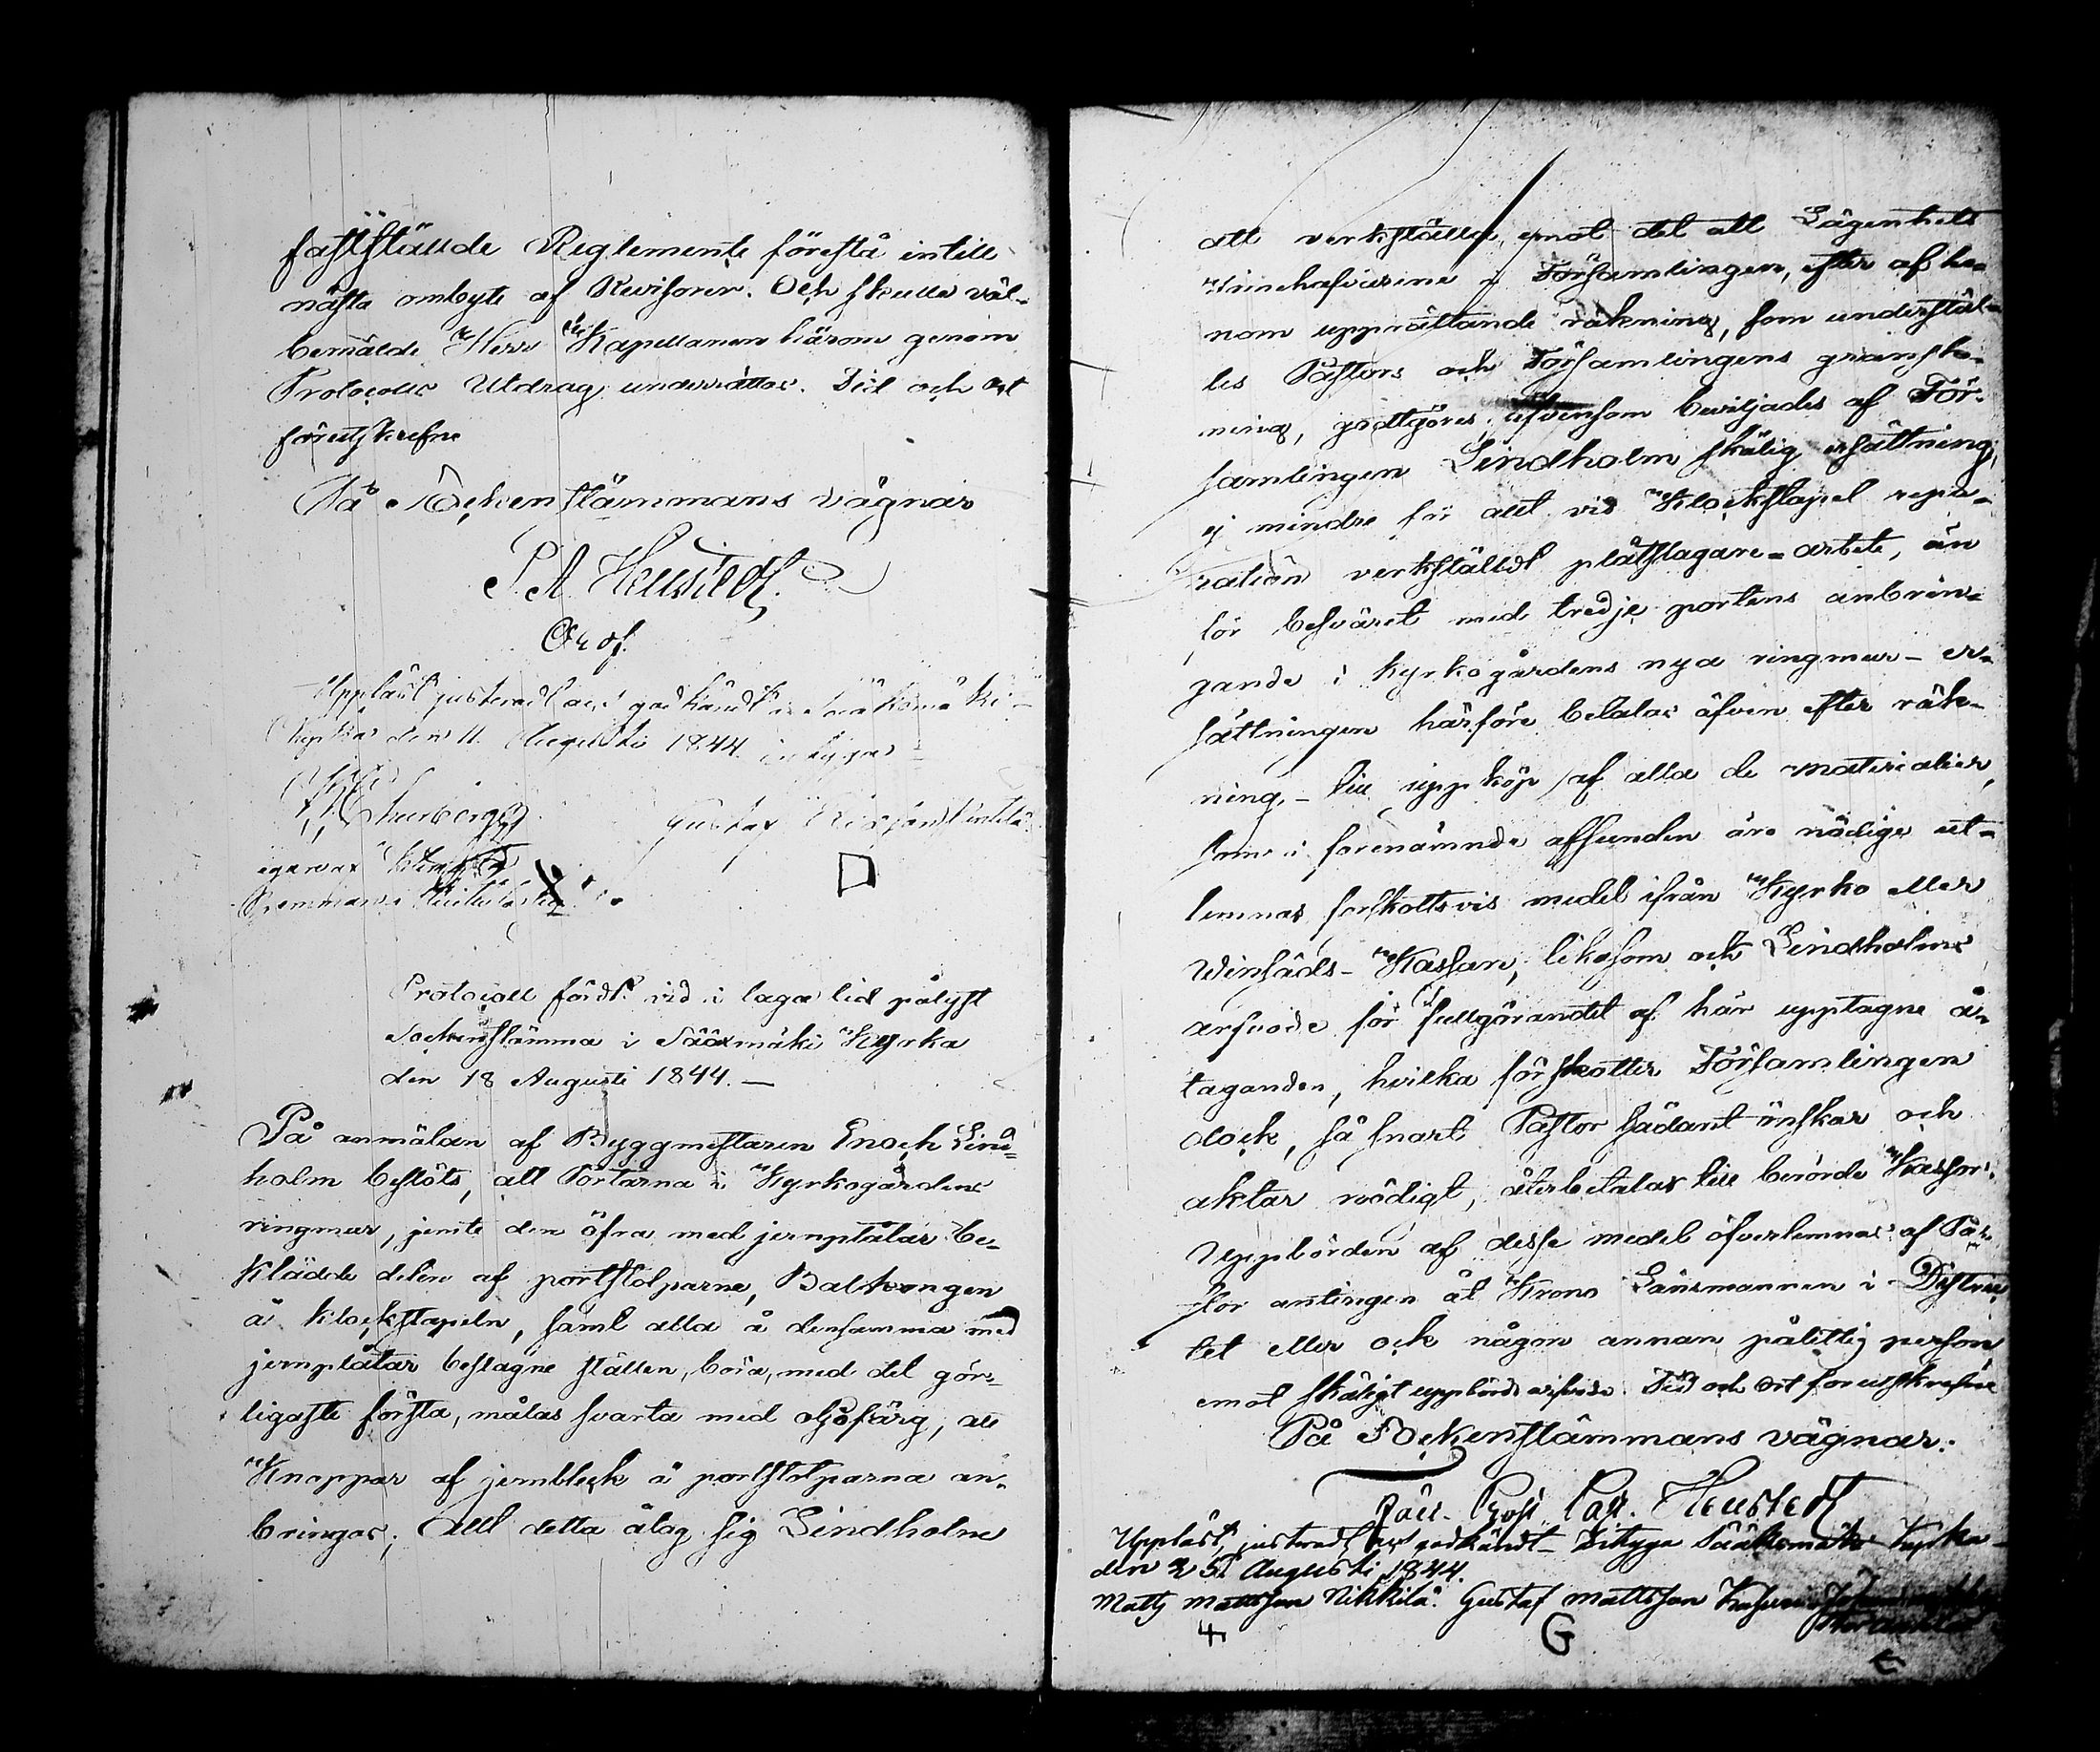 fastställde Reglemente förestå intill
nästa ombyte af Revisorer. Och skulle väl-
bemälde Herr Kapellanen härom genom
Protocolls Utdrag underrättas. Tid och ort
förutskrefne
På Sockenstämmans vägnar
Heustedt.
Uppläst justeradt och godkändt i Sääksmäki
den 11 Augusti 1844
Gustaf
Protocoll fördt vid i laga tid pålyst
Sockenstämma i Sääxmäki Kyrka
den 18 Augusti 1844. —
På anmälan af Byggmestaren Enoch Lind-
holm beslöts, att Portarna i Kyrkogårdens
ringmur, jemte den öfra med jernplåtar be-
klädde delen af portstolparne, Balkongen
å klockstapeln, samt alla å densamma med
jernplåtar beslagne ställen, böra, med det gör-
ligaste första, målas svarta med oljofärg, och
Knappar af jernbleck å portstolparna an-
bringas; Allt detta åtog sig Lindholm
att verkställa, emot det att Lägenhets
Innehafvarene i Församlingen, efter af ho-
nom upprättande räkning, som underställ-
les Pastors och Församlingens gransk-
ning, godtgöres; äfvensom beviljades af För-
samlingen Lindholm skälig ersättning,
ej mindre för allt vid Klockstapel repa-
ration verkställdt plåtslagare-arbete, än
för besväret med tredje portens anbrin-
gande i kyrkogårdens nya ringmur - er-
sättningen härföre betalas äfven efter räk-
ning, - till uppköp af alla de materialier,
som i förenämnde afseenden äro nödige ut-
lemnas förskottsvis medel ifrån Kyrko eller
Winsäds-Kassan, likasom och Lindholms
arfvode för fullgörandet af här upptagne å-
taganden, hvilka förskotter Församlingen
dock, så snart Pastor sådant önskar och
aktar nödigt, återbetalar till berörde Kassor.
Uppbörden af desse medel öfverlemnas af Pa-
stor antingen åt Krono Länsmannen i Distric-
tet eller ock någon annan pålitlig person,
emot skäligt uppbörds arfvode. Tid och ort förutskrefne
På Sockenstämmans vägnar:
Heustedt
Uppläst, justeradt och godkändt - Sääksmäki
den 25 Augusti 1844.
Matts Mattsson Nikkilä. Gustaf Mattsson
G